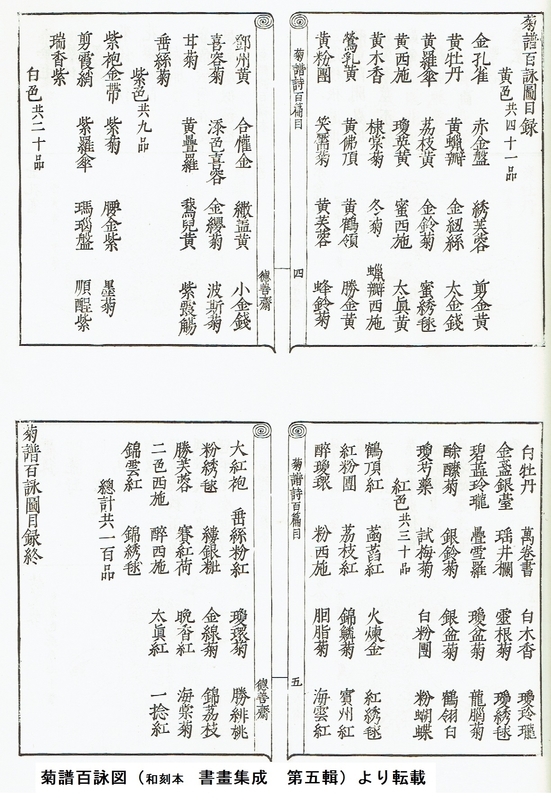 菊譜百詠圖目録
黄色共四十一品
金孔雀　赤金盤　綉芙蓉　剪金黄
黄牡丹　黄蠟瓣　金紐絲　大金錢
黄羅傘　荔枝黄　金鈴菊　蜜綉毬
黄西施　瓊英黄　蜜西施　太真黄
黄木香　棣棠菊　冬菊　蠟瓣西施
鶯乳黄　黄佛頂　黄鶴領　勝金黄
黄粉團　笑靨菊　黄芙蓉　蜂鈴菊
菊譜詩百篇目　四
總善齋
鄧州黄　合懽金　繖蓋黄　小金錢
喜容菊　添色喜容　金纓菊　波斯菊
甘菊　黄疊羅　鵞兒黄　紫霞觴
垂絲菊
紫色共九品
紫袍金帶　紫菊　腰金紫　墨菊
剪霞綃　紫羅傘　瑪瑙盤　順醒紫
瑞香紫
白色共二十品
白牡丹　萬卷書　白木香　瓊玲瓏
金盞銀臺　瑶井欄　靈根菊　瓊綉毬
碧蕋玲瓏　疊雪羅　瓊盆菊　龍腦菊
酴醾菊　銀鈴菊　銀盆菊　鶴翎白
瓊芍藥　試梅菊　白粉團　粉蝴蝶
紅色共三十品
鶴頂紅　菡萏紅　火煉金　紅綉毬
紅粉團　荔枝紅　錦鱗菊　賓州紅
醉瓊環　粉西施　胭脂菊　海雲紅
菊譜詩百篇目　五
總善齋
大紅袍　垂絲粉紅　瓊環菊　勝緋桃
粉綉毬　縷銀粧　金線菊　錦荔枝
勝芙蓉　賽紅荷　晩香紅　海棠菊
二色西施　醉西施　太真紅　一捻紅
錦雲紅　錦綉毬
總計共一百品
菊譜百詠圖目録終
菊譜百詠図（和刻本　書畫集成　第五輯）より転載